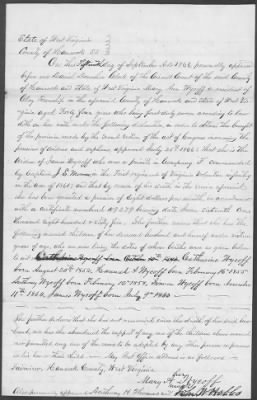 State of West Virginia
County of Hancock SS
On this fifteenth day of September A.D. 1866, personally appeared
before me Daniel Donehoo Clerk of the Circuit Court of the said County
of Hancock and State of West Virginia Mary Ann Wycoff a resident of
Clay Township in the aforesaid County of Hancock and State of West Vir
ginia aged forty four years who being first duly sworn according to law
doth on her oath make the following declaration in order to obtain the benefit
of the provision made by the second section of the act of Congress increasing the
pension of widows and orphans approved July 25th 1866: that she is the
widow of James Wycoff who was a private in Company F commanded
by Captain in the First regiment of Virginia Volunteer infantry
in the war of 1861; and that by reason of his death in the war aforesaid
she has been granted a pension of Eight dollars per month, in accordance
with a certificate numbered
hundred and sixty five. She further swears that she has the
following named children of her deceased husband and herself under sixteen
years of age, who are now living the dates of whose births are as given below
to wit Catharine Wycoff
born August 20th 1852. Hannah A Wycoff born February 16th 1855
Anthony Wycoff born February 10th 1857. Wycoff born November
11th 1860. James Wycoff born July 9th 1862
She further declares that she has not
and, nor has she abandoned the support of any one of the children above named
nor permitted any one of the same to be adopted by any other person or persons
as his her or their child. My Post Office address is as follows
Fairview, Hancock County, West Virginia
Mary A Wycoff
her
mark
Also personally appeared Anthony H Thousand and